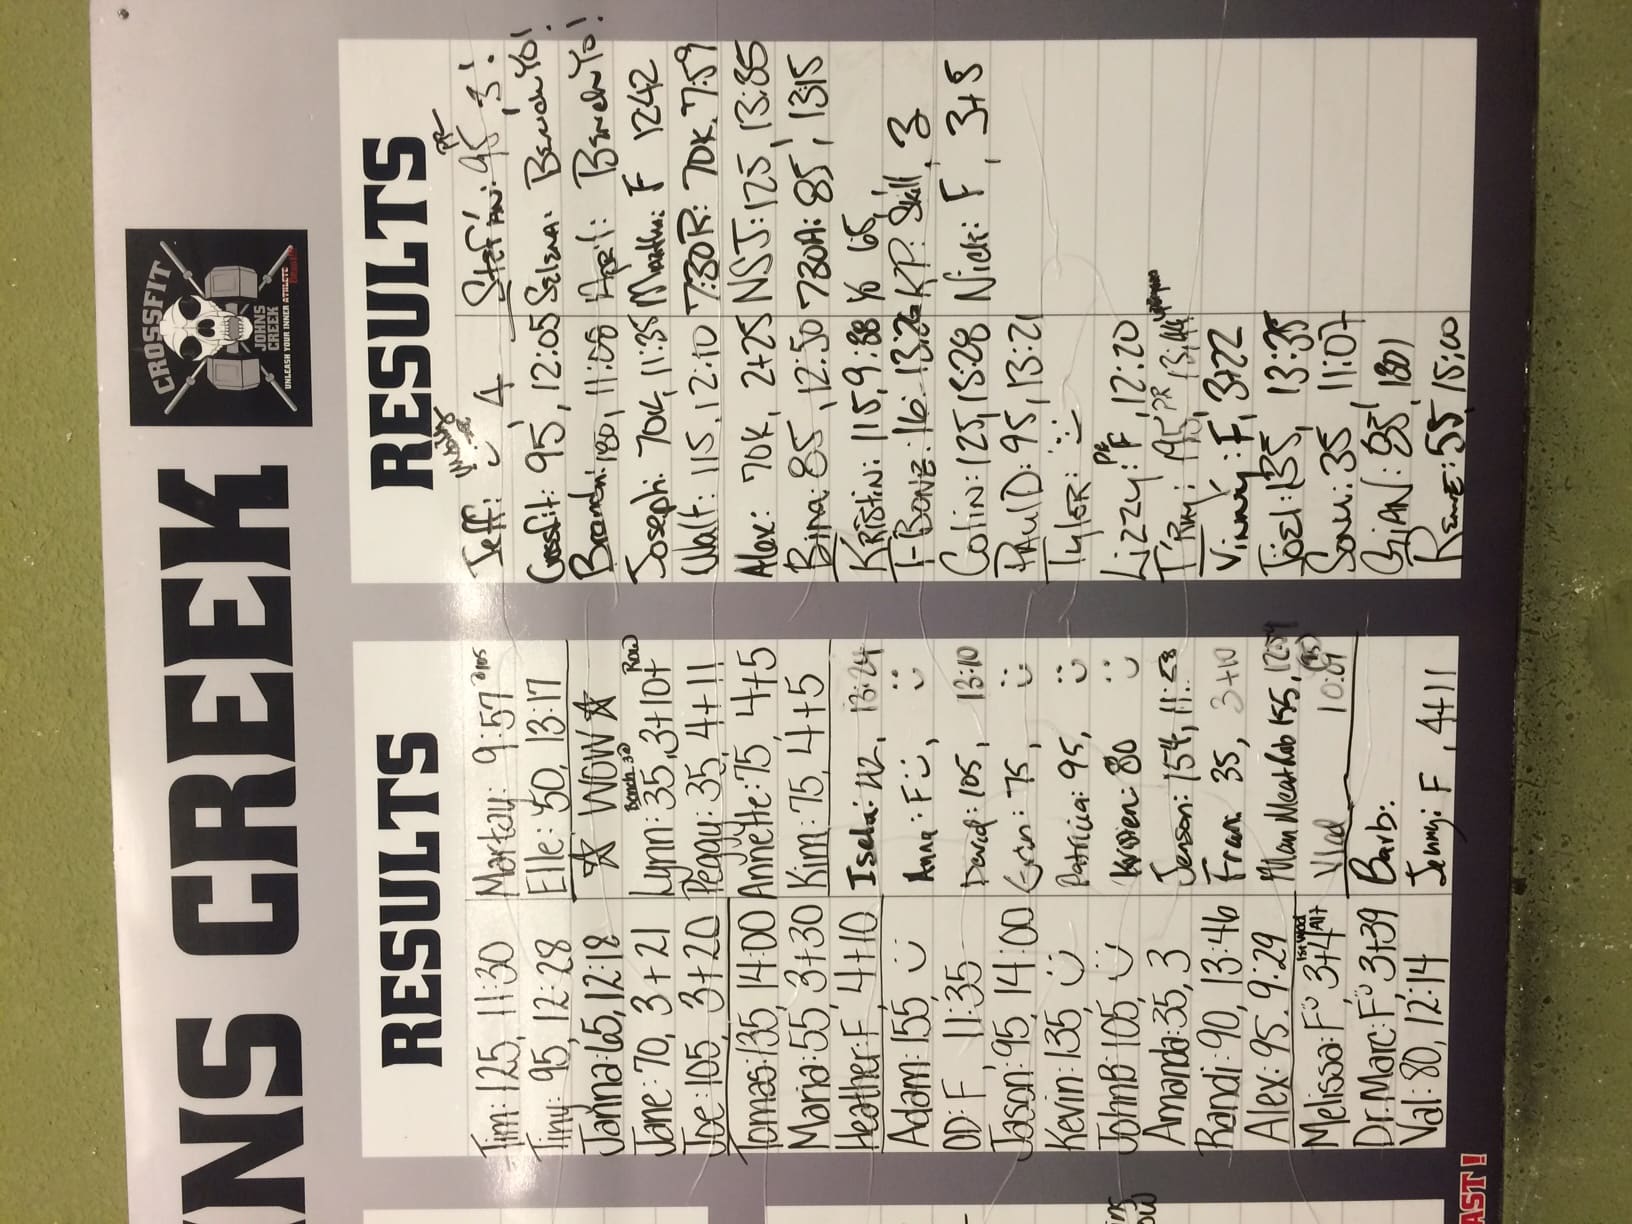 NS CREEK
CROSSFIT
JOHNS
CREEK
UNLEASH YOUR INNER ATHLETE
RESULTS
Tim: 125, 11:30
Tiny: 95, 12:28
Janna: 65, 12:18
Jane: 70, 3+21
Joe: 105, 3+20
Tomas: 135, 14:00
Maria: 55, 3+30
Heather: F, 4+10
Adam: 155
OD: F, 11:35
Jason: 95, 14:00
Kevin: 135
JohnB: 105
Amanda: 35, 3
Randi: 90, 13:46
Alex: 95, 9:29
Melissa: F 3+4
Dr. Marc: F 3+39
Val: 80, 12:14
9:57
Elle: 50, 13:17
WOW
Lynn: 35, 3+10+ Row
Peggy: 35, 4+11
Annette: 75 4+5
Kim: 75, 4+5
Isela: 13:24
Anna: F
David: 105, 13:10
75,
Patricia: 95,
80
Jenson: 154, 11:28
Fran: 35, 3+10
Vlad
Barb:
Jenny: F, 4+11
RESULTS
Jeff: 4
Crossfit: 95, 12:05
Brandi: 180, 11:08
Joseph: 70K, 11:35
Walt: 115, 12:10
Alex: 70K, 2+25
Bina: 85, 12:50
Kristin: 115, 9:88
T-Bone:
Colin: 125, 15:28
Paul D: 95, 13:21
Tyler:
Lizzy: F, 12:20
Vinny: F, 3+22
Joel: 135, 13:35
Sonu: 35 11:07
55, 15:00
PR
Stefan: 95, 3!
Selena: Bench Yo!
April: Bench Yo!
F 1242
7:30R: 70K, 7:59
NSJ: 125, 13:35
730A: 85, 13:15
65
KP: Skill, 3
Nick: F, 3+8
AST!